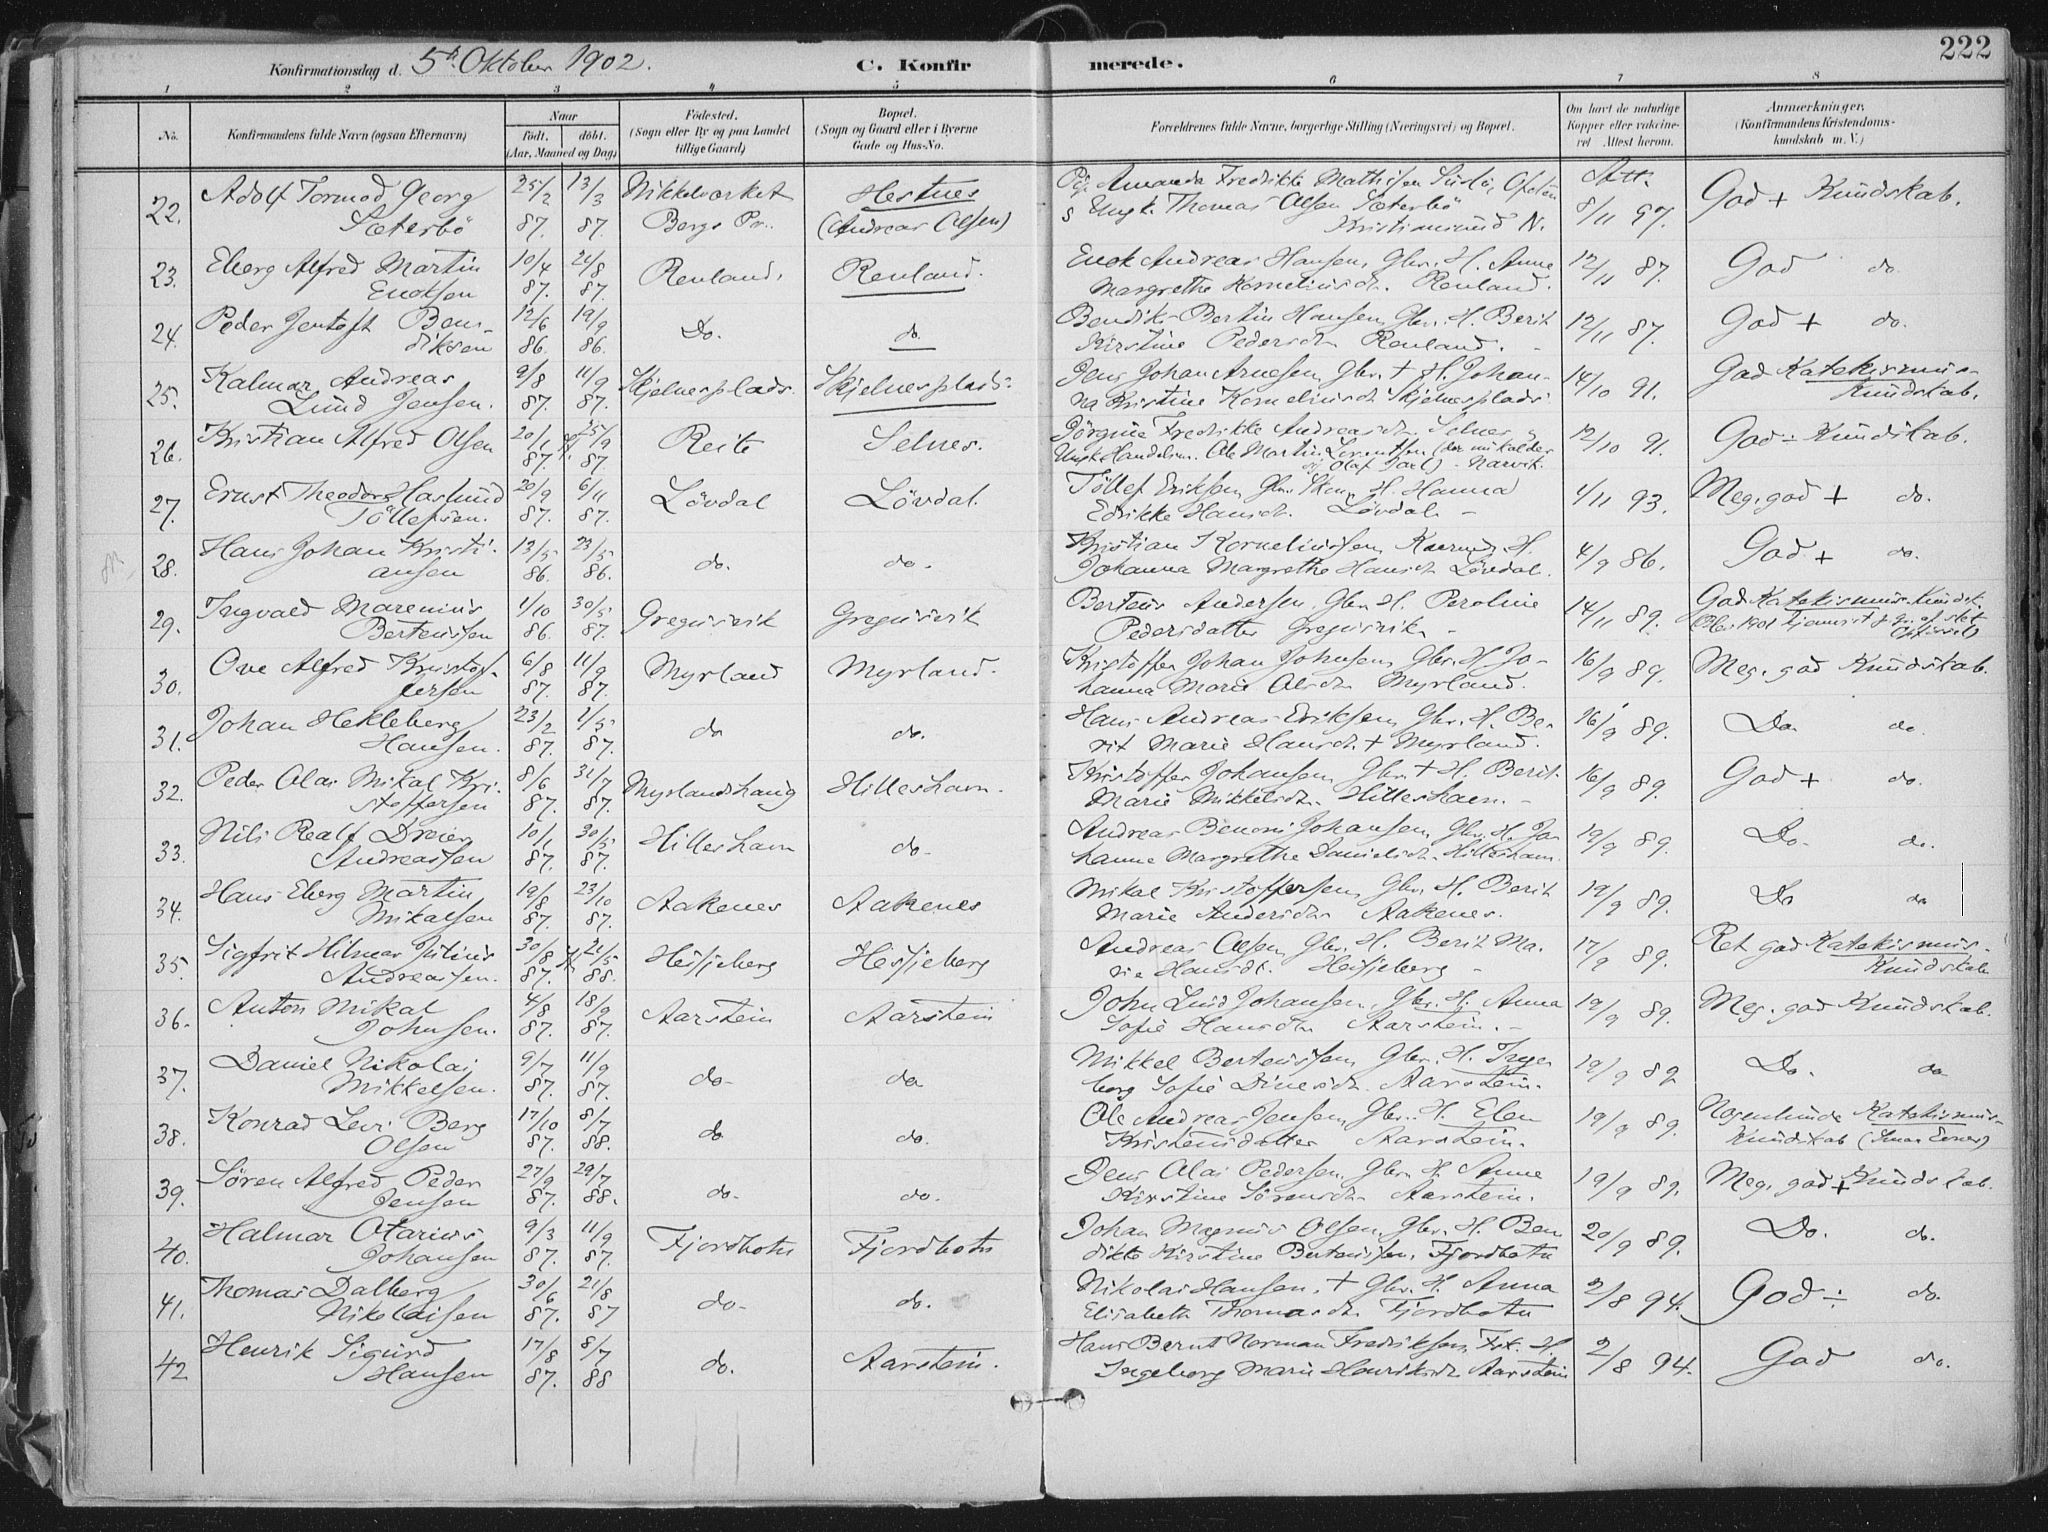 222
Konfirmationsdag d. 5t Oktober 1902. C. Konfirmerede.
1 2 3 4 5 6 7 8
No. Konfirmandens fulde Navn (ogsaa Efternavn) Naar født. døbt. (Aar, Maaned og Dag) Fødested. (Sogn eller By og paa Landet tillige Gaard) Bopæl. (Sogn og Gaard eller i Byerne Gade og Hus-No. Forældrenes fulde Navne, borgerlige Stilling (Næringsvei) og Bopæl. Om havt de naturlige Kopper eller vakcineret. Attest herom. Anmærkninger. (Konfirmandens Kristendomskundskab m. V.)
22. Adolf Tormod Georg 25/2 13/3 Nikkelværket Hestnes Pig. Amanda Fredrikke Mathisen Att. God + Kundskab.
Sæterbö 87. 87. Bergs Pr. (Andreas Olsen) & Ungk. Thomas Olsen Sæterbö 8/11 97.
Kristiansund N.
23. Eberg Alfred Martin 10/4 21/8 Renland. Renland. Enok Andreas Hansen, Gbr. H. Anne 12/11 87. God do.
Enoksen 87. 87. Margrethe Kornelinsdr. Renland.
24. Peder Jentoft Ben- 12/6 19/9 Do. do. Bendik Bertin Hansen, Gbr. H. Berit 12/11 87. God + do.
diksen 86. 86. Kirstine Pedersdr. Renland.
25. Kalmar Andreas 9/8 11/9 Skjelnesplads. Skjelnesplads. Jens Johan Arnesen, Gbr. + H. Johan- 14/10 91. God Katekismus-
Lund Jensen. 87. 87. na Kristine Kornelinsdr. Skjelnesplads Kundskab.
26. Kristian Alfred Olsen 20/1 25/9 Reite Selnes. Jörgine Fredrikke Andreasdr. Selnes 12/10 91. God ÷ Kundskab.
87. 87. Ungk. Handelsm. Ole Martin Lorentsen - Narvik.
27. Ernst Theodor Haslund 20/9 6/11 Lövdal Lövdal. Töllef Eriksen, Gbr. H. Hanna 1/11 93. Meg. god + do.
Töllefsen. 87. 87. Edrikke Hansdr. Lövdal.
28. Hans Johan Kristi- 13/5 23/5 do. do. Kristian Kornelinssen, H. 4/9 86. God + do.
ansen 86. 86. Johanna Margrethe Hansdr. Lövdal.
29. Ingvald Marenius 1/10 30/5 Gregusvik Gregusvik Berteus Andersen, Gbr. H. Peroline 14/11 89. God Katekismus-Kundsk.
Berteussen 86. 87. Pedersdatter Gregusvik
30. Ove Alfred Kristof- 6/8 11/9 Myrland Myrland. Kristoffer Johan Johnsen, Gbr. H. Jo- 16/9 89. Meg. god Kundskab.
fersen 87. 87. hanna Marie Olsdr. Myrland.
31. Johan Hekleberg 23/2 1/5 do do. Hans Andreas Eriksen, Gbr. H. Be- 16/9 89. Do. do.
Hansen. 87. 87. rit Marie Hansdr. + Myrland.
32. Peder Olai Mikal Kri- 8/6 31/7 Myrlandshaug Hilleshavn. Kristoffer Johansen, Gbr. + H. Berit 16/9 89. God + do.
stoffersen 87. 87. Marie Mikkelsdr. Hilleshavn.
33. Nils Realf Dreier 10/1 30/5 Hilleshavn do. Andreas Benoni Johansen, Gbr. H. Jo- 19/9 89. Do. do.
Andreassen 87. 87. hanne Margrethe Danielsdr. Hilleshavn.
34. Hans Eberg Martin 19/8 23/10 Aakenes Aakenes Mikal Kristoffersen, Gbr. H. Berit 19/9 89. Do do
Mikalsen 87. 87. Marie Andersdr. Aakenes.
35. Sigfrit Hilmar Julius 30/8 21/5 Hesjeberg Hesjeberg Andreas Olsen, Gbr. H. Berit Ma- 17/9 89. Ret god Katekismus-
Andreassen. 87. 88. rie Hansdr. Hesjeberg Kundskab
36. Anton Mikal 4/8 18/9 Aarstein Aarstein John Lind Johansen, Gbr. H. Anna 19/9 89. Meg. god Kundskab.
Johnsen. 87. 87. Sofie Hansdr. Aarstein.
37. Daniel Nikolai 9/7 11/9 do. do Mikkel Berteussen, Gbr. H. Inge- 19/9 89 Do. do
Mikkelsen. 87. 87. borg Sofie Dinesdr. Aarstein.
38. Konrad Levi Berg 17/10 8/7 do do. Ole Andreas Jensen, Gbr. H. Elen 19/9 89. Nogenlunde Katekismus-
Olsen 87. 88. Kristensdatter Aarstein. Kundskab (Smaa Evner)
39. Sören Alfred Peder 27/9 29/7 do. do. Jens Olai Pedersen, Gbr. H. Anne 19/9 89. Meg. god + Kundskab.
Jensen 87. 88. Kirstine Sörensdr. Aarstein.
40. Halmar Otarius 9/3 11/9 Fjordbotn Fjordbotn Johan Magnus Olsen, Gbr. H. Ben- 20/9 89. Do. do.
Johansen 87. 87. dikte Kirstine Berteussen, Fjordbotn
41. Thomas Dalberg 30/6 21/8 do. do. Nikolai Hansen, + Gbr. H. Anna 2/8 94. God ÷ do.
Nikolaisen 87. 87 Elisabeth Thomasdr. Fjordbotn
42 Henrik Sigurd 17/8 8/7 do. Aarstein. Hans Bernt Norman Fredriksen, H. 2/8 94. God do.
Hansen 87. 88 Ingeborg Marie Henriksdr. Aarstein